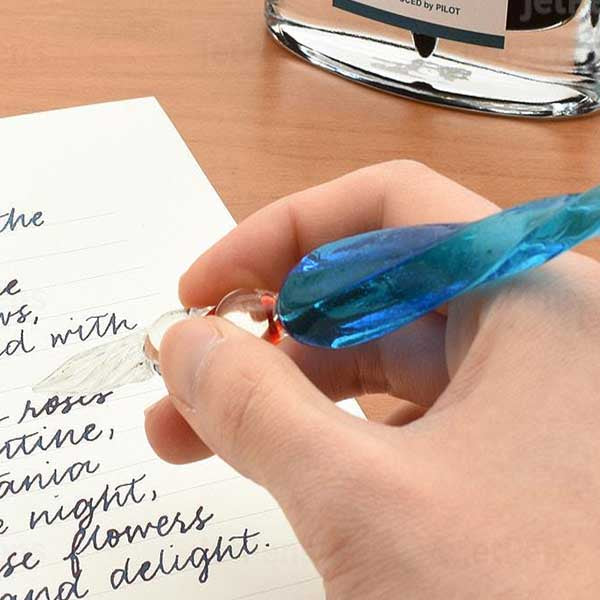 CED by PILOT
the
e
ws,
d with
roses
ntine,
tania
e night,
se flowers
and delight.